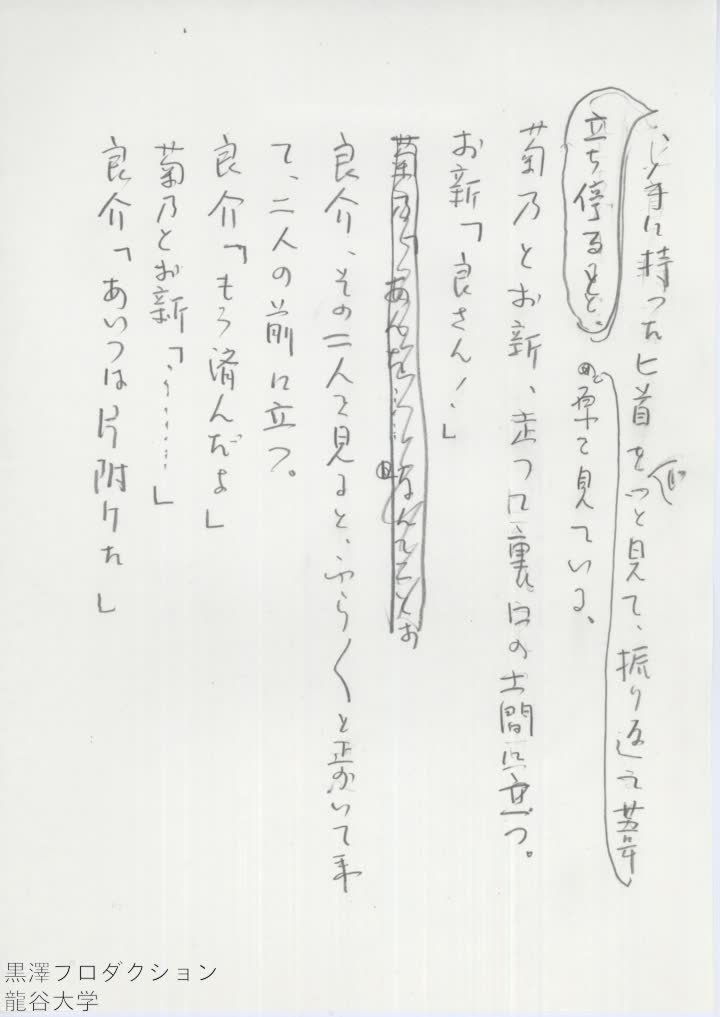 手に持った匕首をじっと見て、振り返って葦
立ち停ると、
原を見ている。
菊乃とお新、走って裏口の土間に立つ。
お新「良さん！」
菊乃「あんた……なんてことお
良介、その二人を見ると、ふら〱と歩いて来
て、二人の前に立つ。
良介「もう済んだよ」
菊乃とお新「う……」
良介「あいつは片附けた」
黒澤プロダクション
龍谷大学